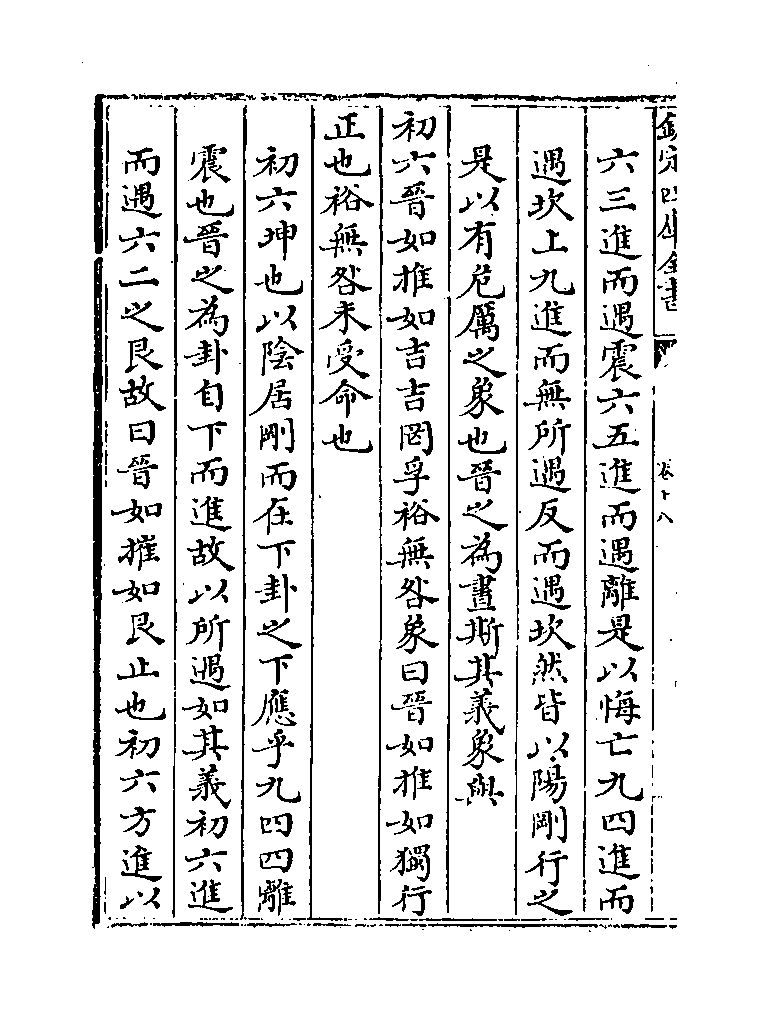 欽定四庫全書
卷十八
六三進而遇震六五進而遇離是以悔亡九四進而
遇坎上九進而無所遇反而遇坎然皆以陽剛行之
是以有危厲之象也晉之為晝斯其義象與
初六晉如摧如吉吉罔孚裕無咎象曰晉如摧如獨行
正也裕無咎未受命也
初六坤也以陰居剛而在下卦之下應乎九四四離
震也晉之為卦自下而進故以所遇如其義初六進
而遇六二之艮故曰晉如摧如艮止也初六方進以